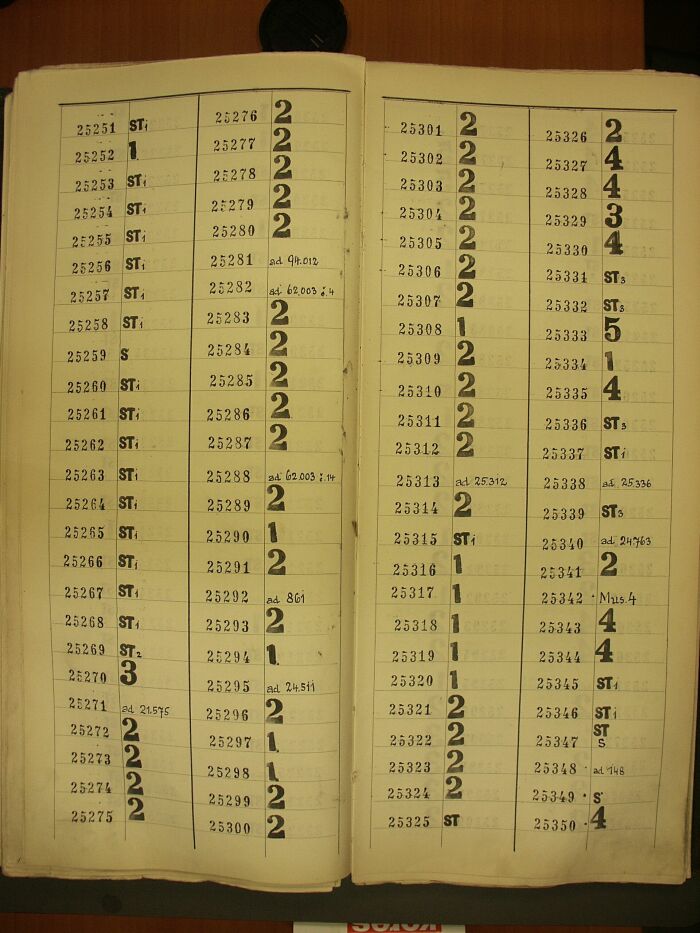 25251 ST1
25252 1.
25253 ST1
25254 ST1
25255 ST1
25256 ST1
25257 ST1
25258 ST1
25259 S
25260 ST1
25261 ST1
25262 ST1
25263 ST1
25264 ST1
25265 ST1
25266 ST1
25267 ST1
25268 ST1
25269 ST2
25270 3
25271 ad 21.575
25272 2
25273 2
25274 2
25275 2
25276 2
25277 2
25278 2
25279 2
25280 2
25281 ad 94.012
25282 ad 62.003 j.4
25283 2
25284 2
25285 2
25286 2
25287 2
25288 ad 62.003 j.14
25289 2
25290 1
25291 2
25292 ad 861
25293 2
25294 1.
25295 ad 24.511
25296 2
25297 1.
25298 1
25299 2
25300 2
25301 2
25302 2
25303 2
25304 2
25305 2
25306 2
25307 2
25308 1
25309 2
25310 2
25311 2
25312 2
25313 ad 25.312
25314 2
25315 ST1
25316 1
25317 1
25318 1
25319 1
25320 1
25321 2
25322 2
25323 2
25324 2
25325 ST
25326 2
25327 4
25328 4
25329 3
25330 4
25331 ST3
25332 ST3
25333 5
25334 1
25335 4
25336 ST3
25337 ST1
25338 ad 25.336
25339 ST3
25340 ad 24.763
25341 2
25342 · Mus.4
25343 4
25344 4
25345 ST1
25346 ST1
25347 ST S
25348 · ad 148
25349 · S
25350 · 4